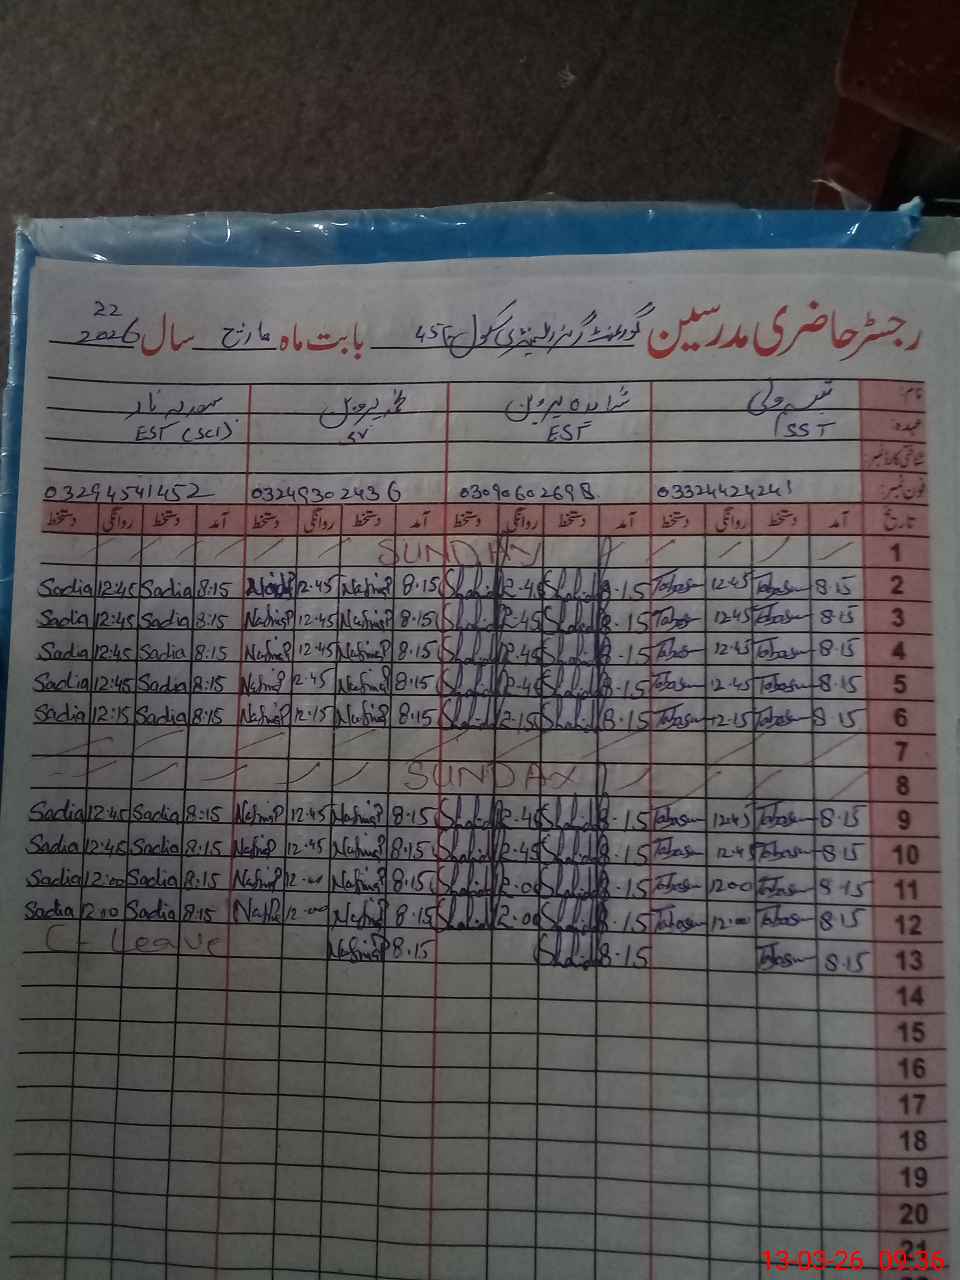 22
رجسٹر حاضری مدرسین گورنمنٹ گرلز ایلیمنٹری سکول 45 بابت ماہ مارچ سال 2026
نام:
شاہدہ پروین
عہدہ: SST EST SV EST (SCI)
شناختی کارڈ نمبر:
فون نمبر: 03324424241 03090602698 03249302436 03294541452
تاریخ آمد دستخط روانگی دستخط آمد دستخط روانگی دستخط آمد دستخط روانگی دستخط آمد دستخط روانگی دستخط
SUNDAY 1
Sadia 12:45 Sadia 8:15 12.45 8.15 Shahid 2.45 Shahid 8.15 Tabasum 12.45 Tabasum 8.15 2
Sadia 12:45 Sadia 8:15 12.45 8.15 Shahid 2.45 Shahid 8.15 Tabasum 12.45 Tabasum 8.15 3
Sadia 12:45 Sadia 8:15 12.45 8.15 Shahid 2.45 Shahid 8.15 Tabasum 12.45 Tabasum 8.15 4
Sadia 12:45 Sadia 8:15 12.45 8.15 Shahid 2.45 Shahid 8.15 Tabasum 12.45 Tabasum 8.15 5
Sadia 12:15 Sadia 8:15 12.15 8.15 Shahid 2.15 Shahid 8.15 Tabasum 12.15 Tabasum 8.15 6
7
SUNDAY 8
Sadia 12:45 Sadia 8:15 12.45 8.15 Shahid 2.45 Shahid 8.15 Tabasum 12.45 Tabasum 8.15 9
Sadia 12:45 Sadia 8:15 12.45 8.15 Shahid 2.45 Shahid 8.15 Tabasum 12.45 Tabasum 8.15 10
Sadia 12:00 Sadia 8:15 12.00 8.15 Shahid 2.00 Shahid 8.15 Tabasum 12.00 Tabasum 8.15 11
Sadia 12:00 Sadia 8:15 12.00 8.15 Shahid 2.00 Shahid 8.15 Tabasum 12.00 Tabasum 8.15 12
C-Leave 8.15 Shahid 8.15 Tabasum 8.15 13
14
15
16
17
18
19
20
21
13-03-26 09:36